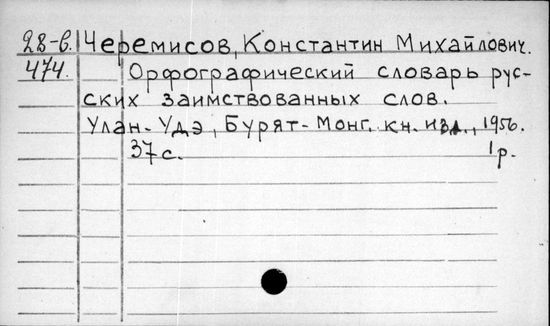 28-в. Черемисов, Константин Михайлович.
474. Орфографический словарь рус-
ских заимствованных слов.
Улан-Удэ, Бурят-Монг. кн. изд., 1956.
37 с. 1 р.